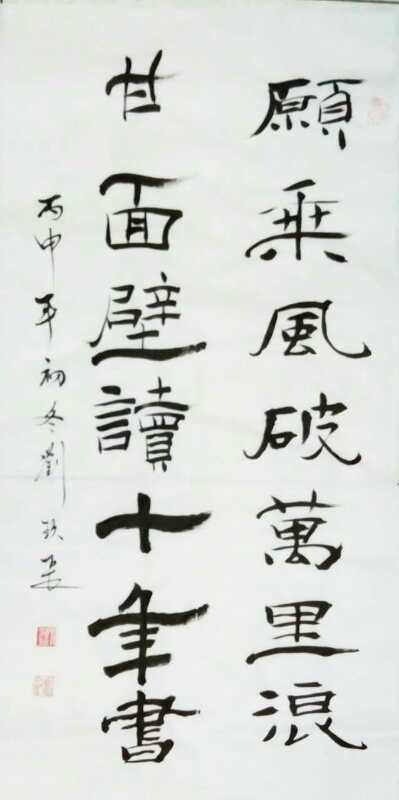 願乘風破萬里浪
甘面壁讀十年書
丙申年初冬劉